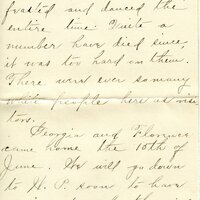 fasted and danced the
entire time. Quite a
number have died since,
it was too hard on them.
There were ever so many
white people here as visi
tors.
Georgia and Florence
came home the 10th of
June. We will go down
to H. P. soon to have